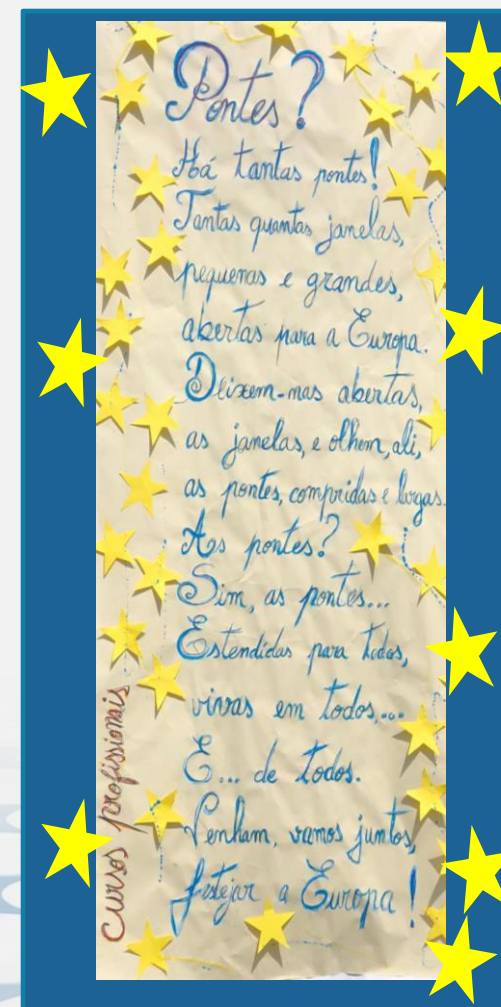 Pontes?
Há tantas pontes!
Tantas quantas janelas,
pequenas e grandes,
abertas para a Europa.
Deixem-nas abertas,
as janelas, e olhem, ali,
as pontes, compridas e largas.
As pontes?
Sim, as pontes...
Estendidas para todos,
vivas em todos,...
E... de todos.
Venham, vamos juntos,
festejar a Europa!
cursos profissionais